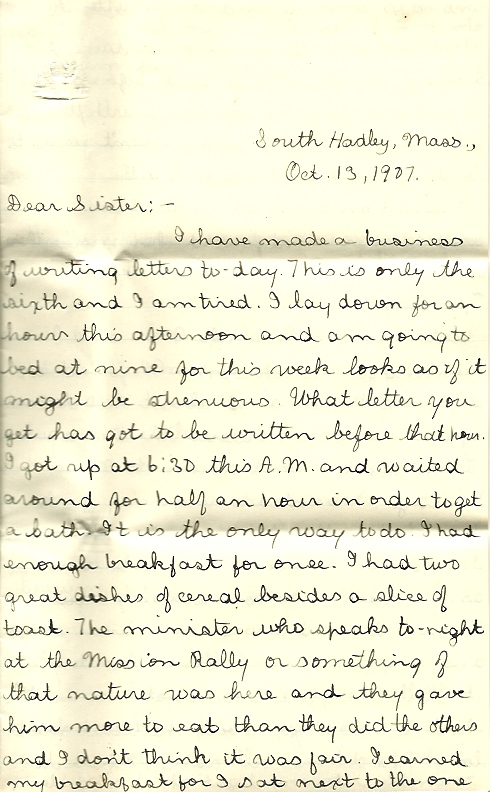 South Hadley, Mass.,
Oct. 13, 1907.
Dear Sister: -
I have made a business
of writing letters to-day. This is only the
sixth and I am tired. I lay down for an
hour this afternoon and am going to
bed at nine for this week looks as if it
might be strenuous. What letter you
get has got to be written before that hour.
I got up at 6:30 this A.M. and waited
around for half an hour in order to get
a bath. It is the only way to do. I had
enough breakfast for once. I had two
great dishes of cereal besides a slice of
toast. The minister who speaks to-night
at the Mission Rally or something of
that nature was here and they gave
him more to eat than they did the others
and I don't think it was fair. I earned
my breakfast for I sat next to the one